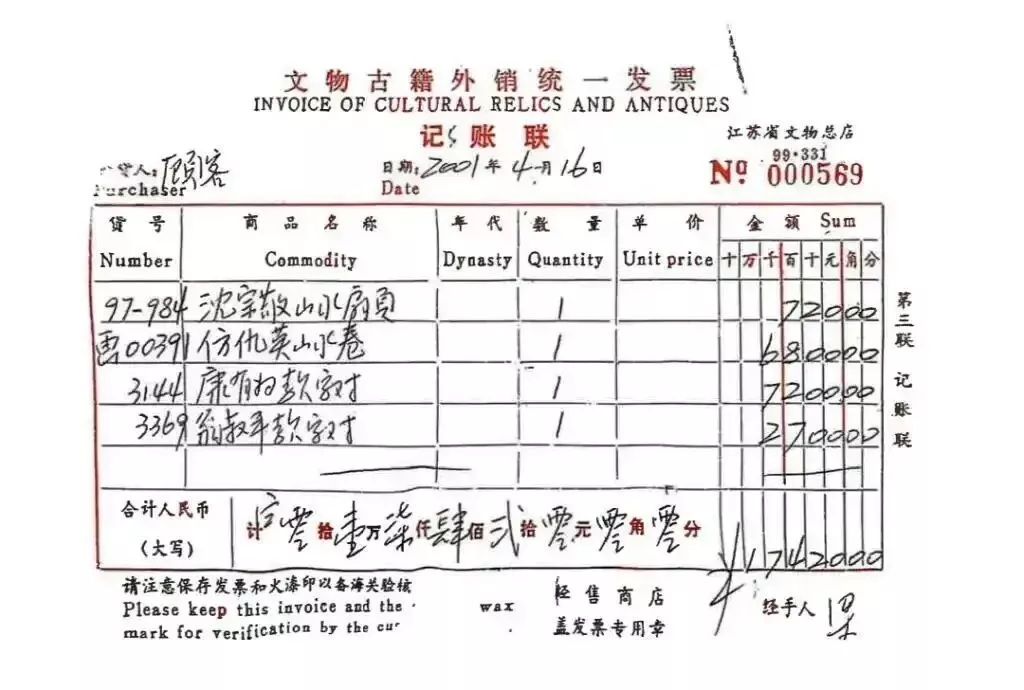 文物古籍外销统一发票
INVOICE OF CULTURAL RELICS AND ANTIQUES
记账联
江苏省文物总店
货人: 顾客
Purchaser
日期: 2001年4月16日
Date
99·331
No 000569
货号 商品名称 年代 数量 单价 金额 Sum
Number Commodity Dynasty Quantity Unit price 十万千百十元角分
97-984 沈宗敬山水扇页 1 72000
画00391 仿仇英山水卷 1 680000
3144 康有为款字对 1 720000
3369 翁叔平款字对 1 270000
合计人民币
(大写)
计 零拾壹万柒仟肆佰贰拾零元零角零分 ¥1742000
第三联 记账联
请注意保存发票和火漆印以备海关验核
Please keep this invoice and the wax
mark for verification by the cu
经售商店
盖发票专用章
经手人